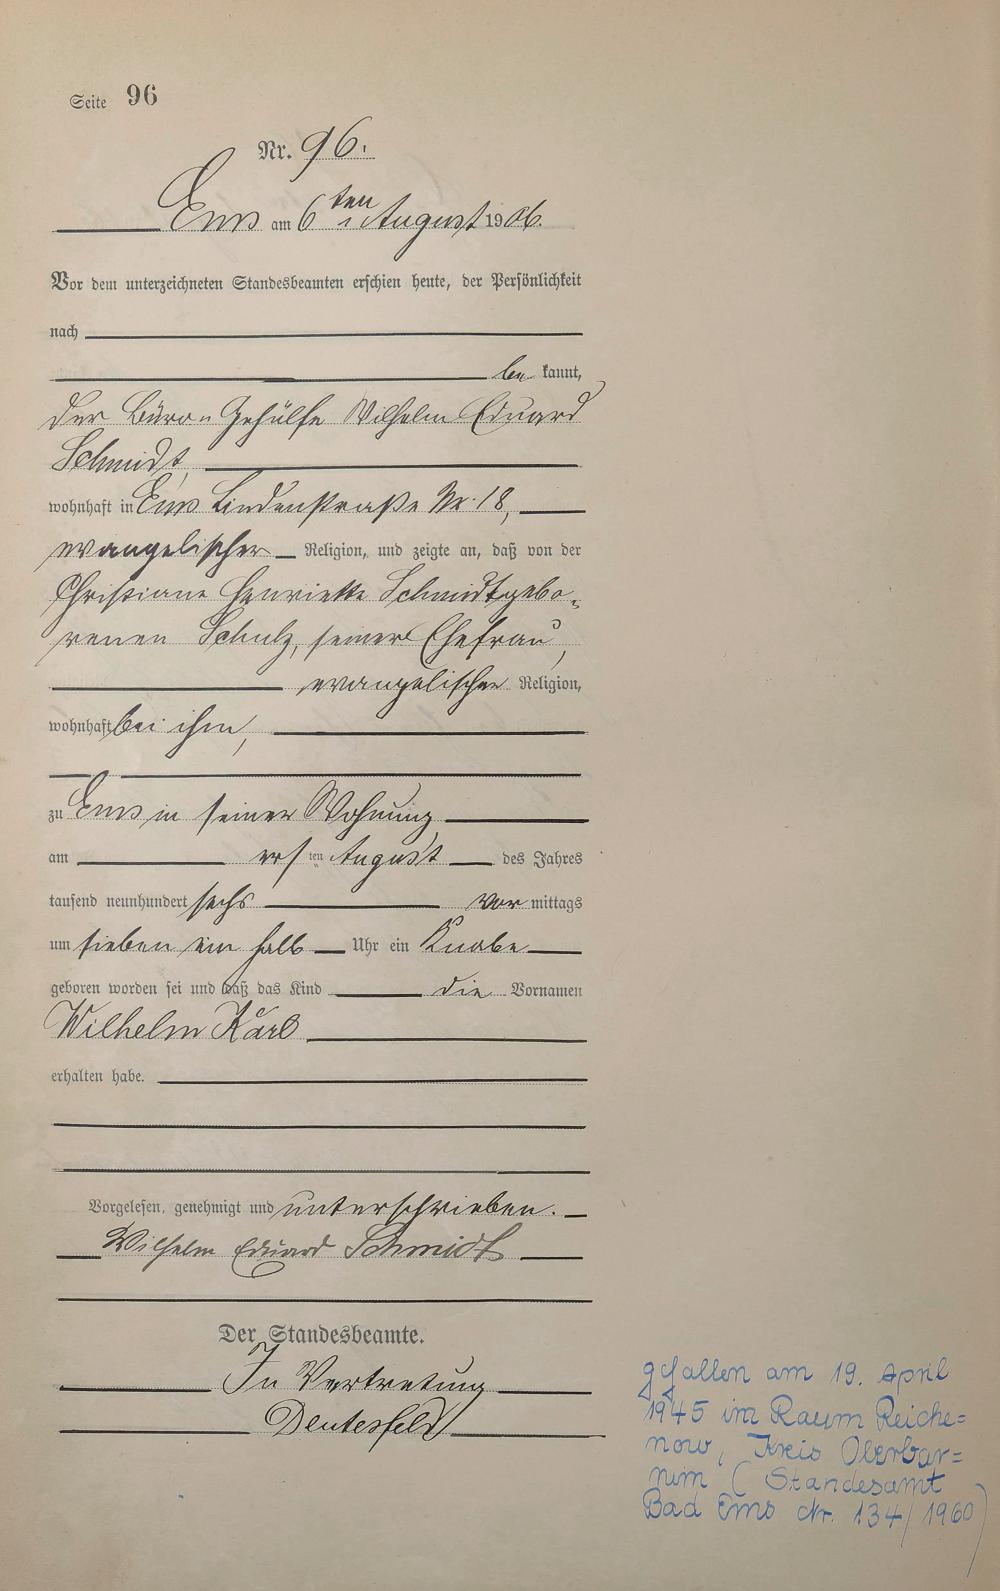 Seite 96
Nr. 96.
Ems am 6ten August 1906.
Vor dem unterzeichneten Standesbeamten erschien heute, der Persönlichkeit
nach
be kannt,
der Büro-Gehülfe Wilhelm Eduard
Schmidt,
wohnhaft in Ems Lindenstraße Nr. 18,
evangelischer Religion, und zeigte an, daß von der
Christiane Henriette Schmidt gebo-
renen Schulz, seiner Ehefrau,
evangelischer Religion,
wohnhaft bei ihm,
zu Ems in seiner Wohnung
am ersten August des Jahres
tausend neunhundert sechs vor mittags
um sieben ein halb Uhr ein Knabe
geboren worden sei und daß das Kind die Vornamen
Wilhelm Karl
erhalten habe.
Vorgelesen, genehmigt und unterschrieben.
Wilhelm Eduard Schmidt
Der Standesbeamte.
In Vertretung
Deutesfeld
gefallen am 19. April
1945 im Raum Reiche=
now, Kreis Oberbar=
nim (Standesamt
Bad Ems Nr. 134/1960)